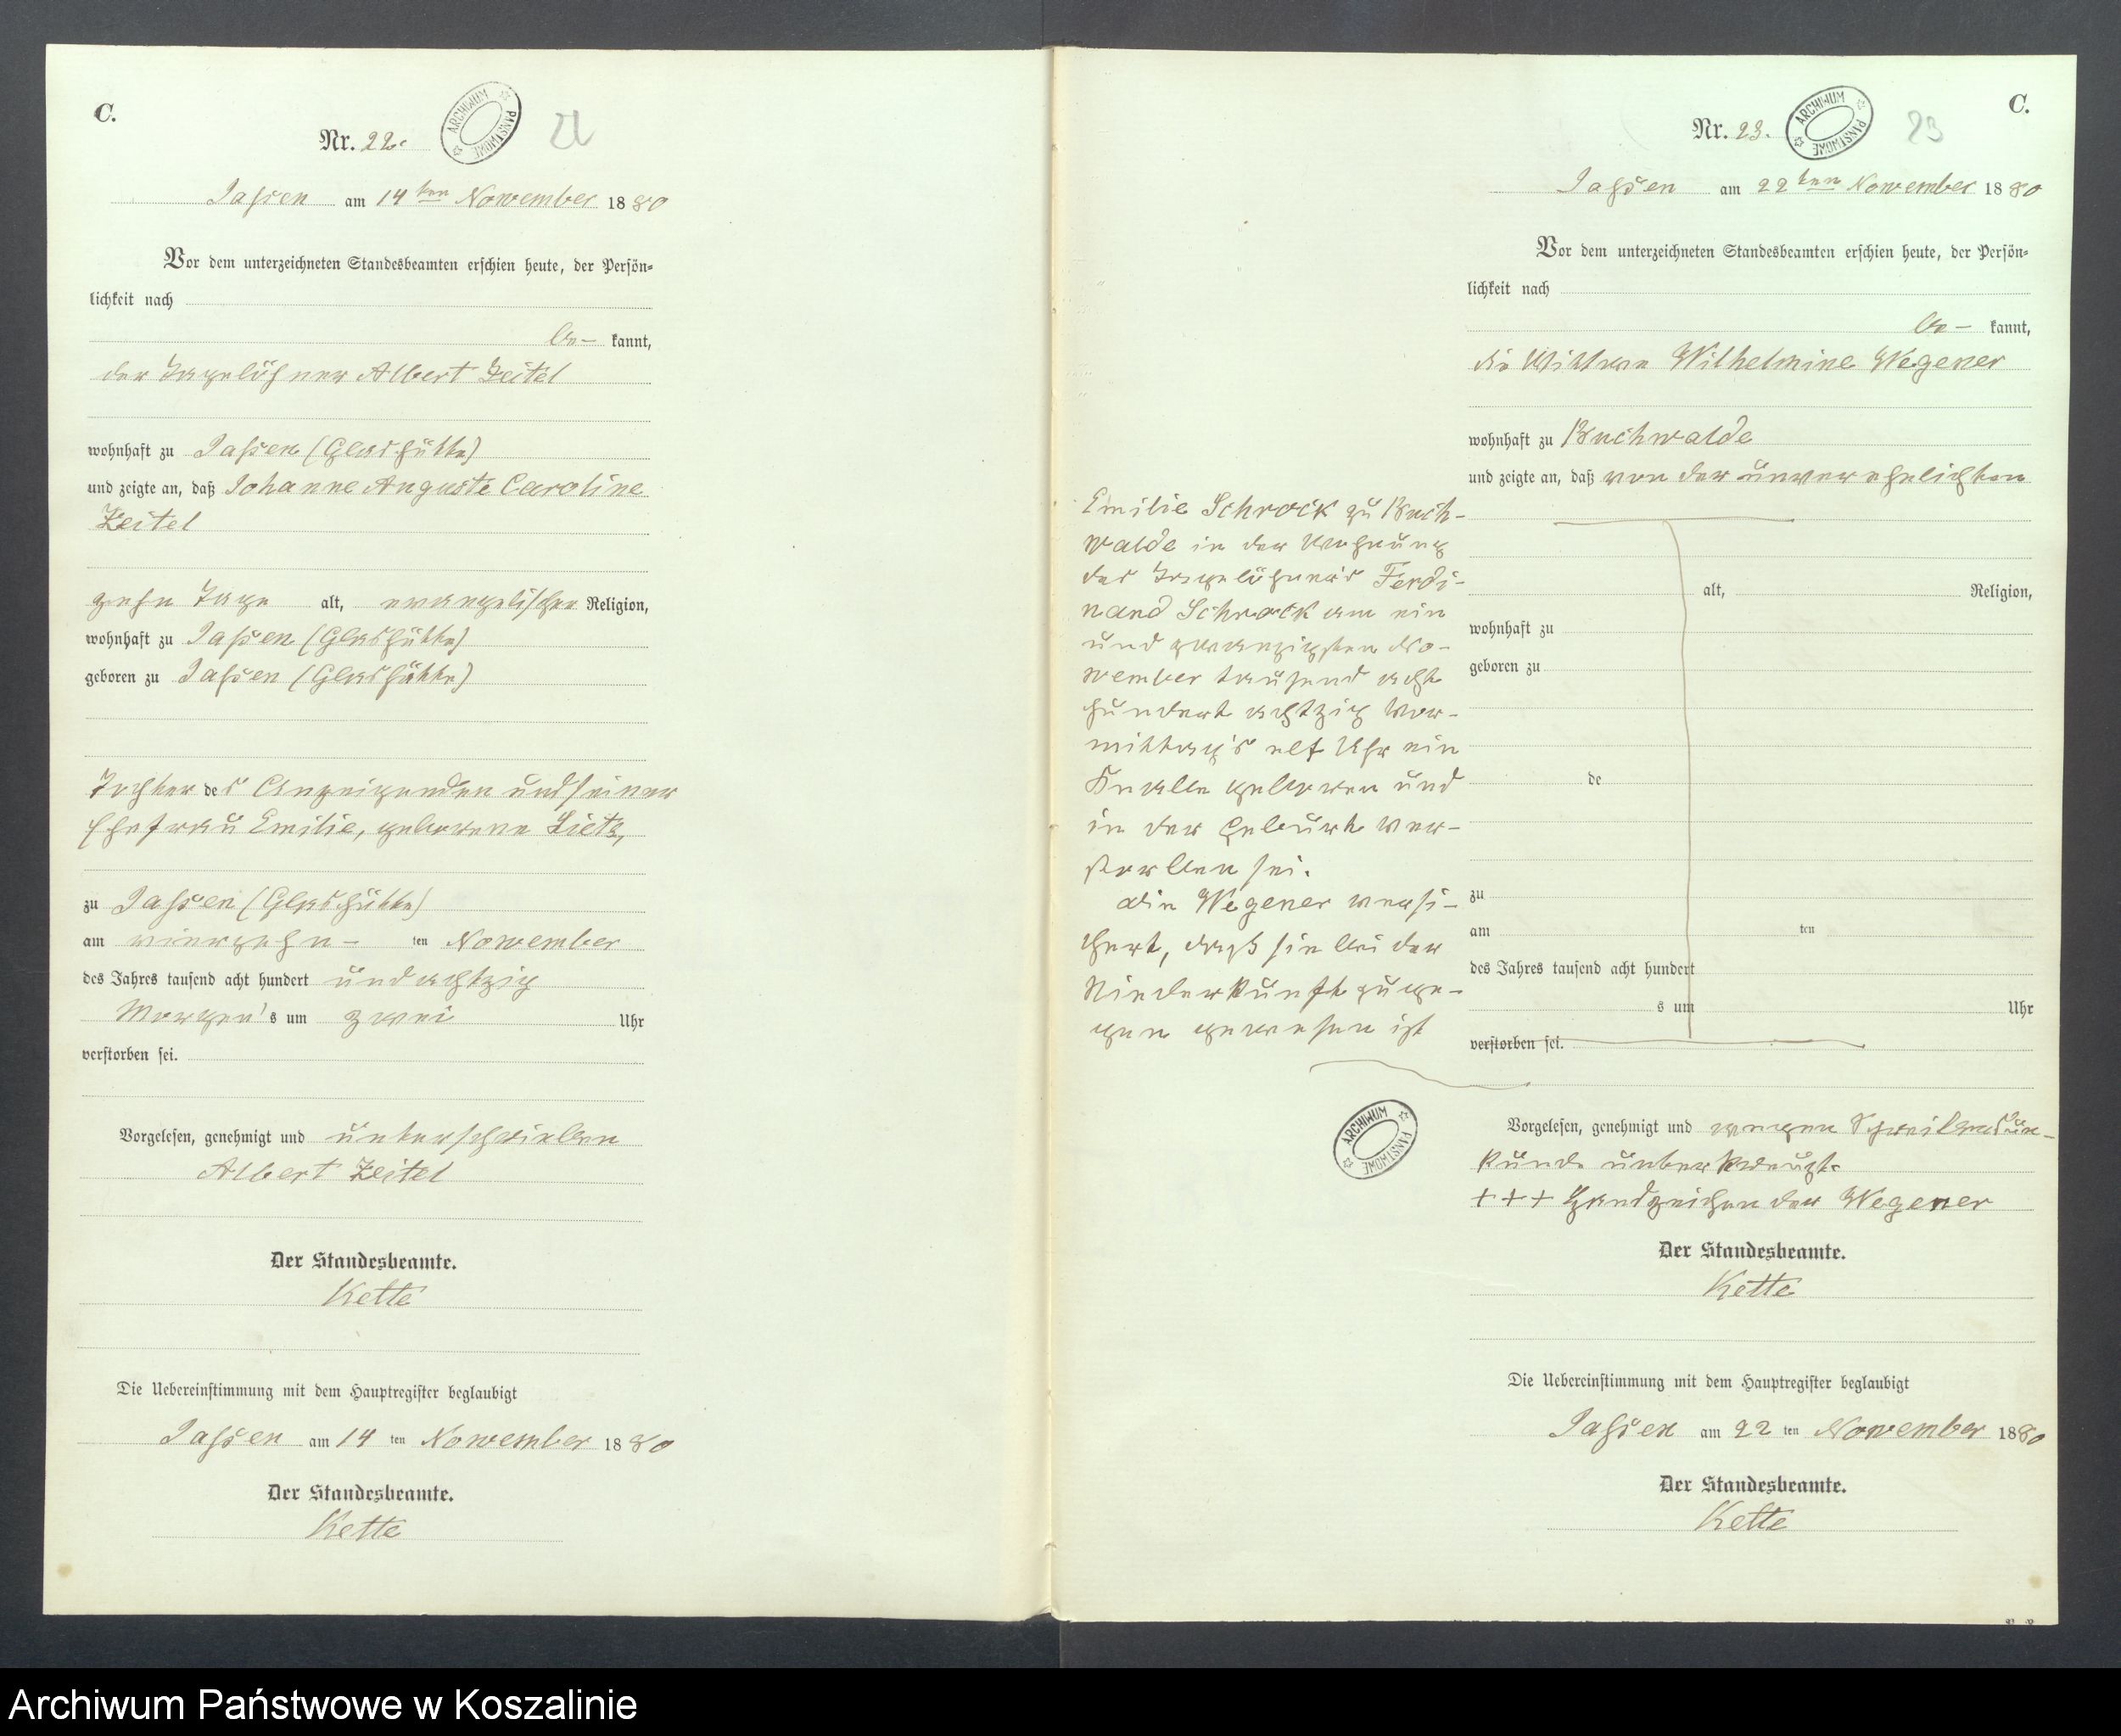 C.
Nr. 22.
ARCHIWUM PAŃSTWOWE
22
Jassen am 14ten November 1880
Vor dem unterzeichneten Standesbeamten erschien heute, der Persön-
lichkeit nach
be- kannt,
der Tagelöhner Albert Zeitel
wohnhaft zu Jassen (Glashütte)
und zeigte an, daß Johanne Auguste Caroline
Zeitel
zehn Tage alt, evangelischer Religion,
wohnhaft zu Jassen (Glashütte)
geboren zu Jassen (Glashütte)
Tochter des Anzeigenden und seiner
Ehefrau Emilie, geborene Lietz,
zu Jassen (Glashütte)
am vierzehn- ten November
des Jahres tausend acht hundert und achtzig
Morgen's um zwei Uhr
verstorben sei.
Vorgelesen, genehmigt und unterschrieben
Albert Zeitel
Der Standesbeamte.
Kette
Die Uebereinstimmung mit dem Hauptregister beglaubigt
Jassen am 14 ten November 1880
Der Standesbeamte.
Kette
C.
Nr. 23.
ARCHIWUM PAŃSTWOWE
23
Jassen am 22ten November 1880
Vor dem unterzeichneten Standesbeamten erschien heute, der Persön-
lichkeit nach
be- kannt,
die Wittwe Wilhelmine Wegener
wohnhaft zu Buchwalde
und zeigte an, daß von der unverehelichten
Emilie Schrock zu Buch-
walde in der Wohnung
des Tagelöhner's Ferdi-
nand Schrock am ein
und zwanzigsten No-
vember tausend acht
hundert achtzig Vor-
mittag's elf Uhr ein
Knabe geboren und
in der Geburt ver-
storben sei.
Die Wegener versi-
chert, daß sie bei der
Niederkunft zuge-
gen gewesen ist
alt, Religion,
wohnhaft zu
geboren zu
de
zu
am ten
des Jahres tausend acht hundert
s um Uhr
verstorben sei.
ARCHIWUM PAŃSTWOWE
Vorgelesen, genehmigt und wegen Schreibensun-
kunde unterkreuzt.
+++ Handzeichen der Wegener
Der Standesbeamte.
Kette
Die Uebereinstimmung mit dem Hauptregister beglaubigt
Jassen am 22 ten November 1880
Der Standesbeamte.
Kette
Archiwum Państwowe w Koszalinie